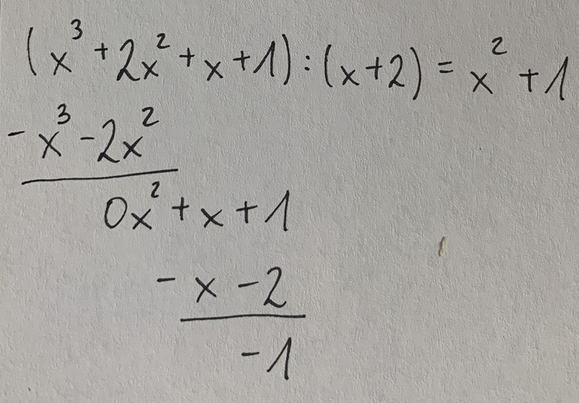 (x³ + 2x² + x + 1) : (x + 2) = x² + 1
- x³ - 2x²
0x² + x + 1
- x - 2
- 1